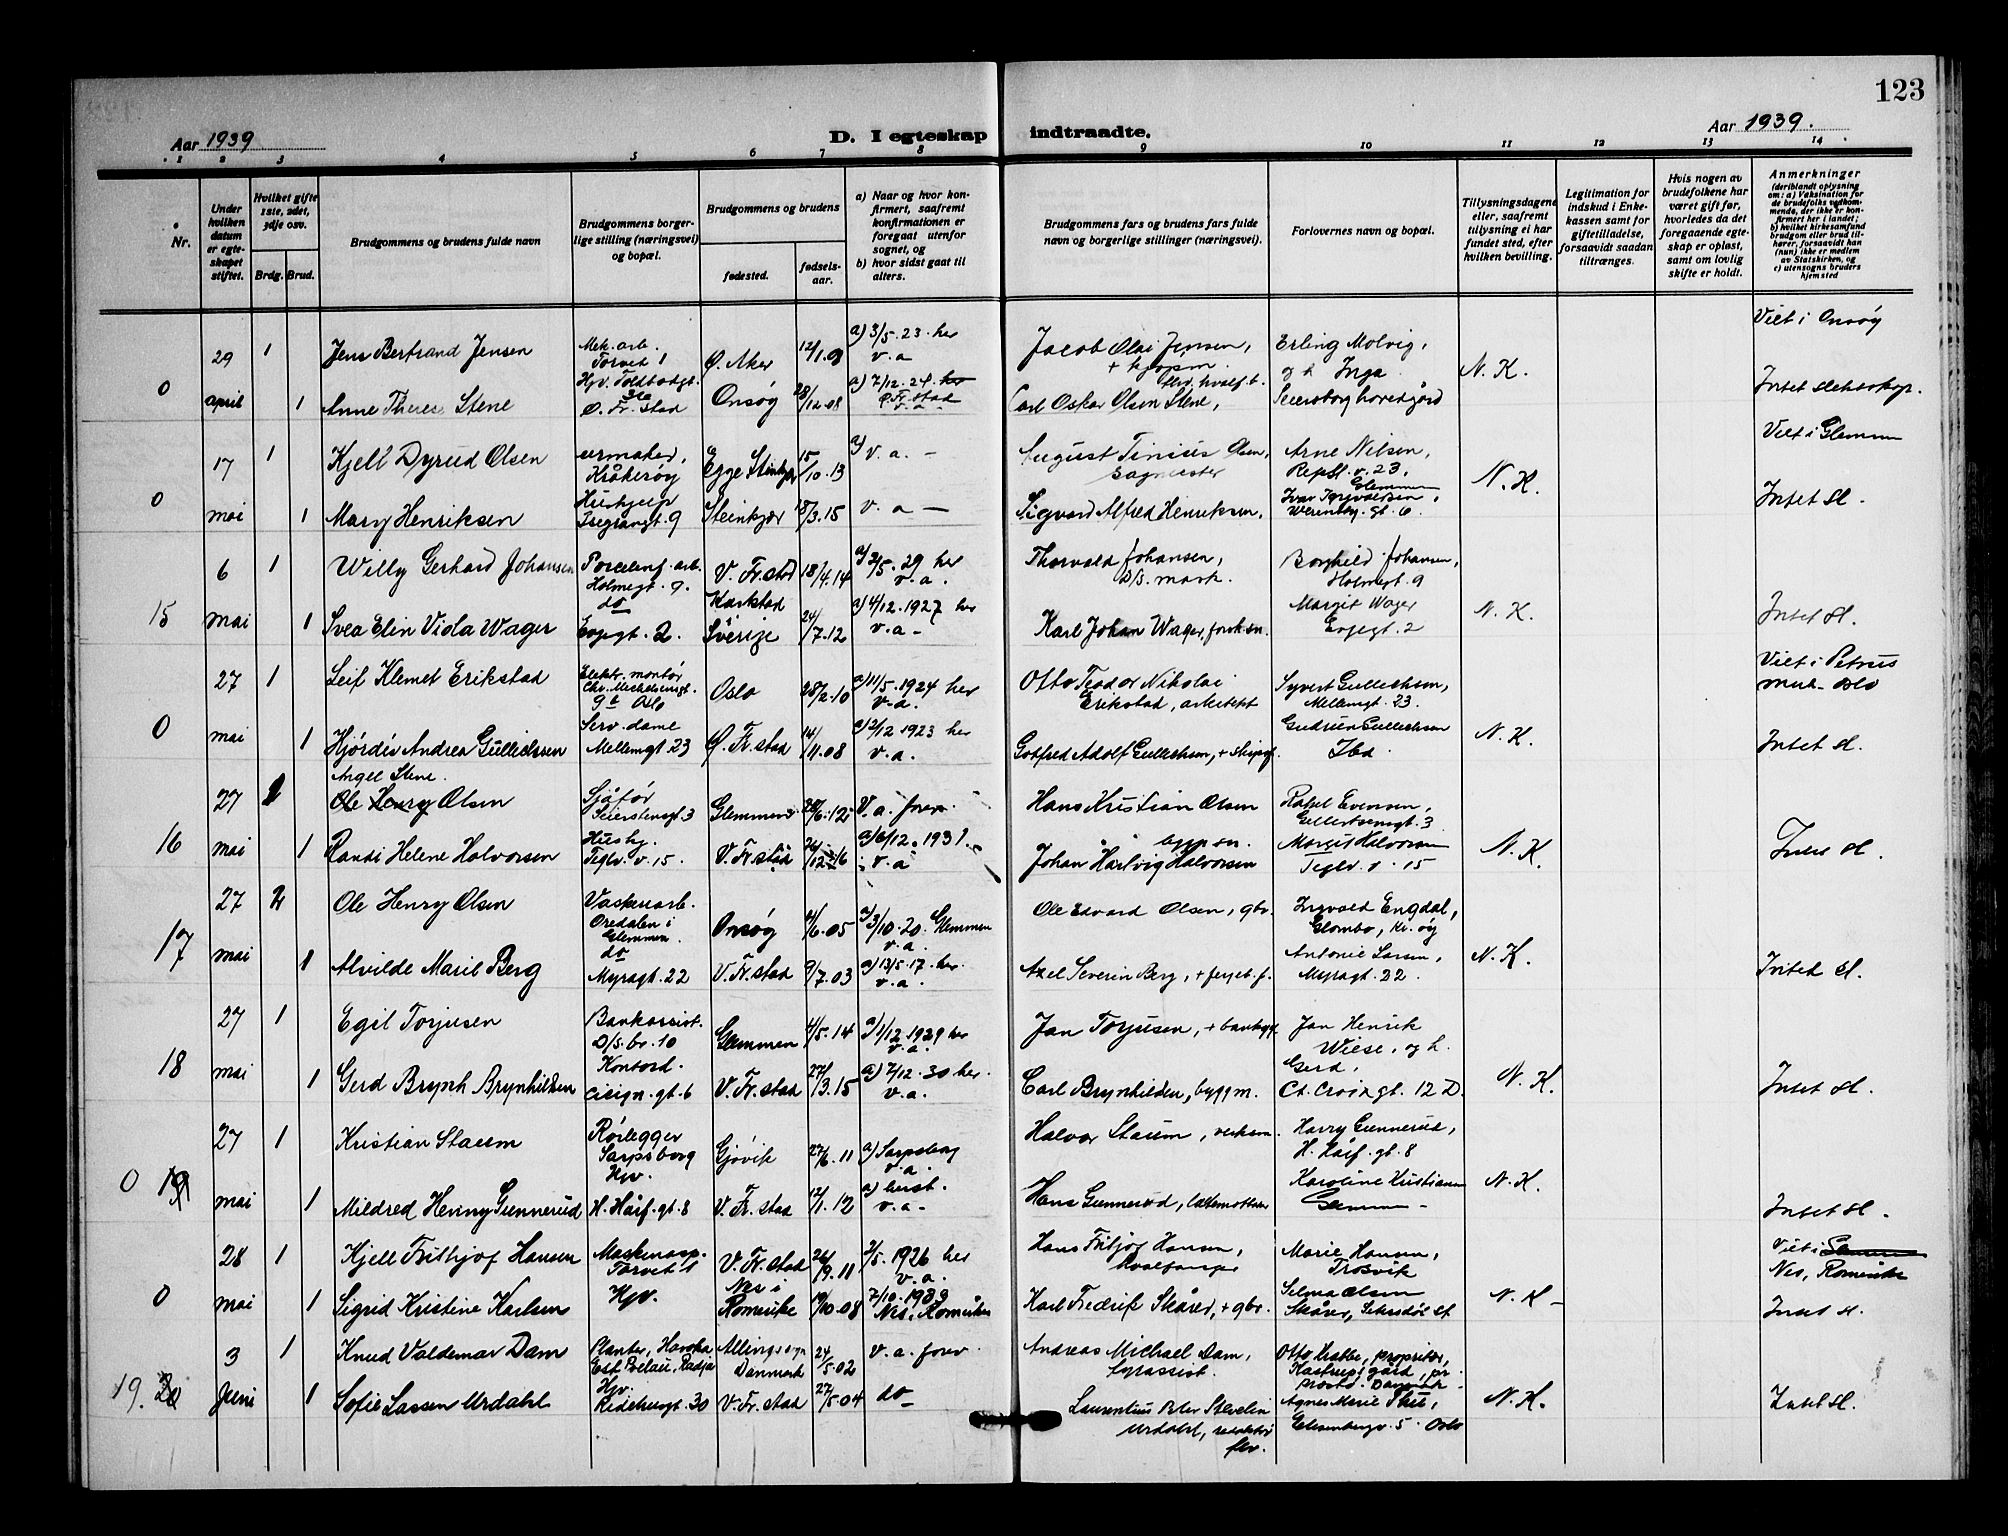 123
Aar 1939
D. I egteskap indtraadte.
Aar 1939.
1 2 3 4 5 6 7 8 9 10 11 12 13 14
Nr.
Under hvilken datum er egteskapet stiftet.
Hvilket gifte 1ste, 2det, 3dje osv.
Brdg. Brud.
Brudgommens og brudens fulde navn
Brudgommens borgerlige stilling (næringsvei) og bopæl.
Brudgommens og brudens
fødested.
fødselsaar.
a) Naar og hvor konfirmert, saafremt konfirmationen er foregaat utenfor sognet, og
b) hvor sidst gaat til alters.
Brudgommens fars og brudens fars fulde navn og borgerlige stillinger (næringsvei).
Forlovernes navn og bopæl.
Tillysningsdagene eller, saafremt tillysning ei har fundet sted, efter hvilken bevilling.
Legitimation for indskud i Enkekassen samt for giftetilladelse, forsaavidt saadan tiltrænges.
Hvis nogen av brudefolkene har været gift før, hvorledes da det foregaaende egteskap er opløst, samt om lovlig skifte er holdt.
Anmerkninger
(deriblandt oplysning om: a) Vaksination for de brudefolks vedkommende, der ikke er konfirmert her i landet; b) hvilket kirkesamfund brudgom eller brud tilhører, forsaavidt han (hun) ikke er medlem av Statskirken, og c) utensogns bruders hjemsted
Viet i Onsøy
29 1 Jens Bertrand Jensen Mek. arb. Torvet 1 Ø. Aker 12/1.03 a) 3/5.23. her v.a Jacob Olai Jensen, + kjøpm. Erling Molvig, og h. Inga N.K.
0 april 1 Anne Theres Stene Hjv. Toldbodgt. Ø. Fr.stad Onsøy 28/12.08 a) 7/12.24. Ø Fr.stad v.a Carl Oskar Olsen Stene, Seiersborg hovedgård Intet slektskap.
Viet i Glemmen
17 1 Kjell Dyrud Olsen urmaker, Kråkerøy Egge Steinkjer 15/10.13 a) v.a. – August Tinius Olsen, sagmester Arne Nilsen, Repsl.v. 23, Glemmen N.K.
0 mai 1 Mary Henriksen Hushjelp Isegrangt. 9 Steinkjer 18/3.15 v.a – Sigvard Alfred Henriksen, Werensky.gt. 6. Intet sl.
6 1 Willy Gerhard Johansen Porcelensf. arb. Holmegt. 9. V. Fr.stad 18/4.14 a) 3/5.29 her v.a. Thorvald Johansen, D/S. mask. Borghild Johansen, Holmegt. 9
15 mai 1 Svea Elin Viola Wager do Evjegt. 2. Karlstad Sverige 24/7.12 a) 4/12.1927 her v.a – Karl Johan Wager, Margit Wager Evjegt. 2 N.K. Intet sl.
Viet i Petrus
27 1 Leif Klemet Erikstad Elektr. montør Oslo Oslo 28/2.10 a) 11/5.1924 her v.a. Otto Teodor Nikolai Erikstad, arkitekt Syvert Gullichsen, Mellemgt. 23. Oslo
0 mai 1 Hjørdis Andrea Gullichsen Serv. dame Mellemgt. 23 Ø. Fr.stad 14/11.08 a) 2/12 1923 her v.a. Gotfred Adolf Gullichsen, Gudrun Gullichsen Ibd. N.K. Intet sl.
Angel Stene.
27 Ole Henry Olsen Sjåfør Seierstensgt. 3 Glemmen 28/6.12 v.a. forv. Hans Kristian Olsen Evensen, Gellertsensgt. 3
16 mai 1 Randi Helene Halvorsen Hushj. Teglv. v. 15. V. Fr.stad 24/12.16 a) 6/12.1931. v.a Johan Hartvig Halvorsen Margit Halvorsen Teglv. v. 15 N.K. Intet sl.
27 2 Ole Henry Olsen Vaskeriarb. Oredalen i Glemmen. Onsøy 4/6.05 a) 3/10.20. Glemmen v.a. Ole Edvard Olsen, gbr. Ingvald Engdal, Glombo, Kr.øy
17 mai 1 Alvilde Marie Berg do Myragt. 22 V. Fr.stad 9/7.03 a) 13/5.17. her. v.a. Axel Severin Berg, + fergeb.f. Antonie Larsen, Myragt. 22. N.K. Intet sl.
27 1 Egil Torjusen Bankassist. D/S.br. 10 Glemmen 4/5.14 a) 1/12 1929 her v.a. Jan Torjusen, Jan Henrik Wiese, og h. Gerd,
18 mai 1 Gerd Brynh Brynhildsen Kontord. Cicign. gt. 6 V. Fr.stad 27/3.15 a) 7/12.30 her. v.a. Carl Brynhildsen, byggm. Ct. Croixgt. 12 D. N.K. Intet sl.
27 1 Kristian Staum Rørlegger Sarpsborg Gjøvik 27/6.11 a) Sarpsborg v.a. Halvor Staum, Harry Gunnerud, H. Håf. gt. 8
0 19 mai 1 Mildred Henny Gunnerud Hjv. H. Håf. gt. 8 V. Fr.stad 12/1.12 a) herst. v.a – Hans Gunnerød, Karoline Kristiansen N.K. Intet sl.
28 1 Kjell Fritjof Hansen Maskinasp. Torvet 1 V. Fr.stad 26/9.11 2/5.1926 her v.a. Hans Fritjof Hansen, hvalfanger Marie Hansen, Trosvik Viet i Nes, Romerike
0 mai 1 Sigrid Kristine Karlsen Hjv. Nes i Romerike 19/10.08 7/10.1923 Nes, Romerike Karl Fredrik Skårer, + gbr. Selma Olsen Skårer, N.K – Intet sl.
3 1 Knud Valdemar Dam Planter, Danmark 24/5.02 v.a. forv. Andreas Michael Dam, Otto Krabbe, proprietær, Kastrup gård, pr. Danmark
19. 20 Juni 1 Sofie Lassen Urdahl Hjv. Ridehusgt. 30 V. Fr.stad 27/5.04 do – Laurentius Peter Urdahl, redaktør Agnes Marie 5. Oslo N.K. Intet sl.